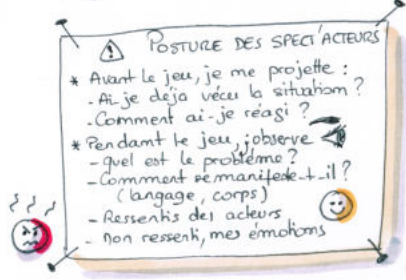 POSTURE DES SPECT'ACTEURS
* Avant le jeu, je me projette :
- Ai-je déjà vécu la situation ?
- Comment ai-je réagi ?
* Pendant le jeu, j'observe
- quel est le problème ?
- Comment se manifeste-t-il ?
(langage, corps)
- Ressentis des acteurs
- Mon ressenti, mes émotions